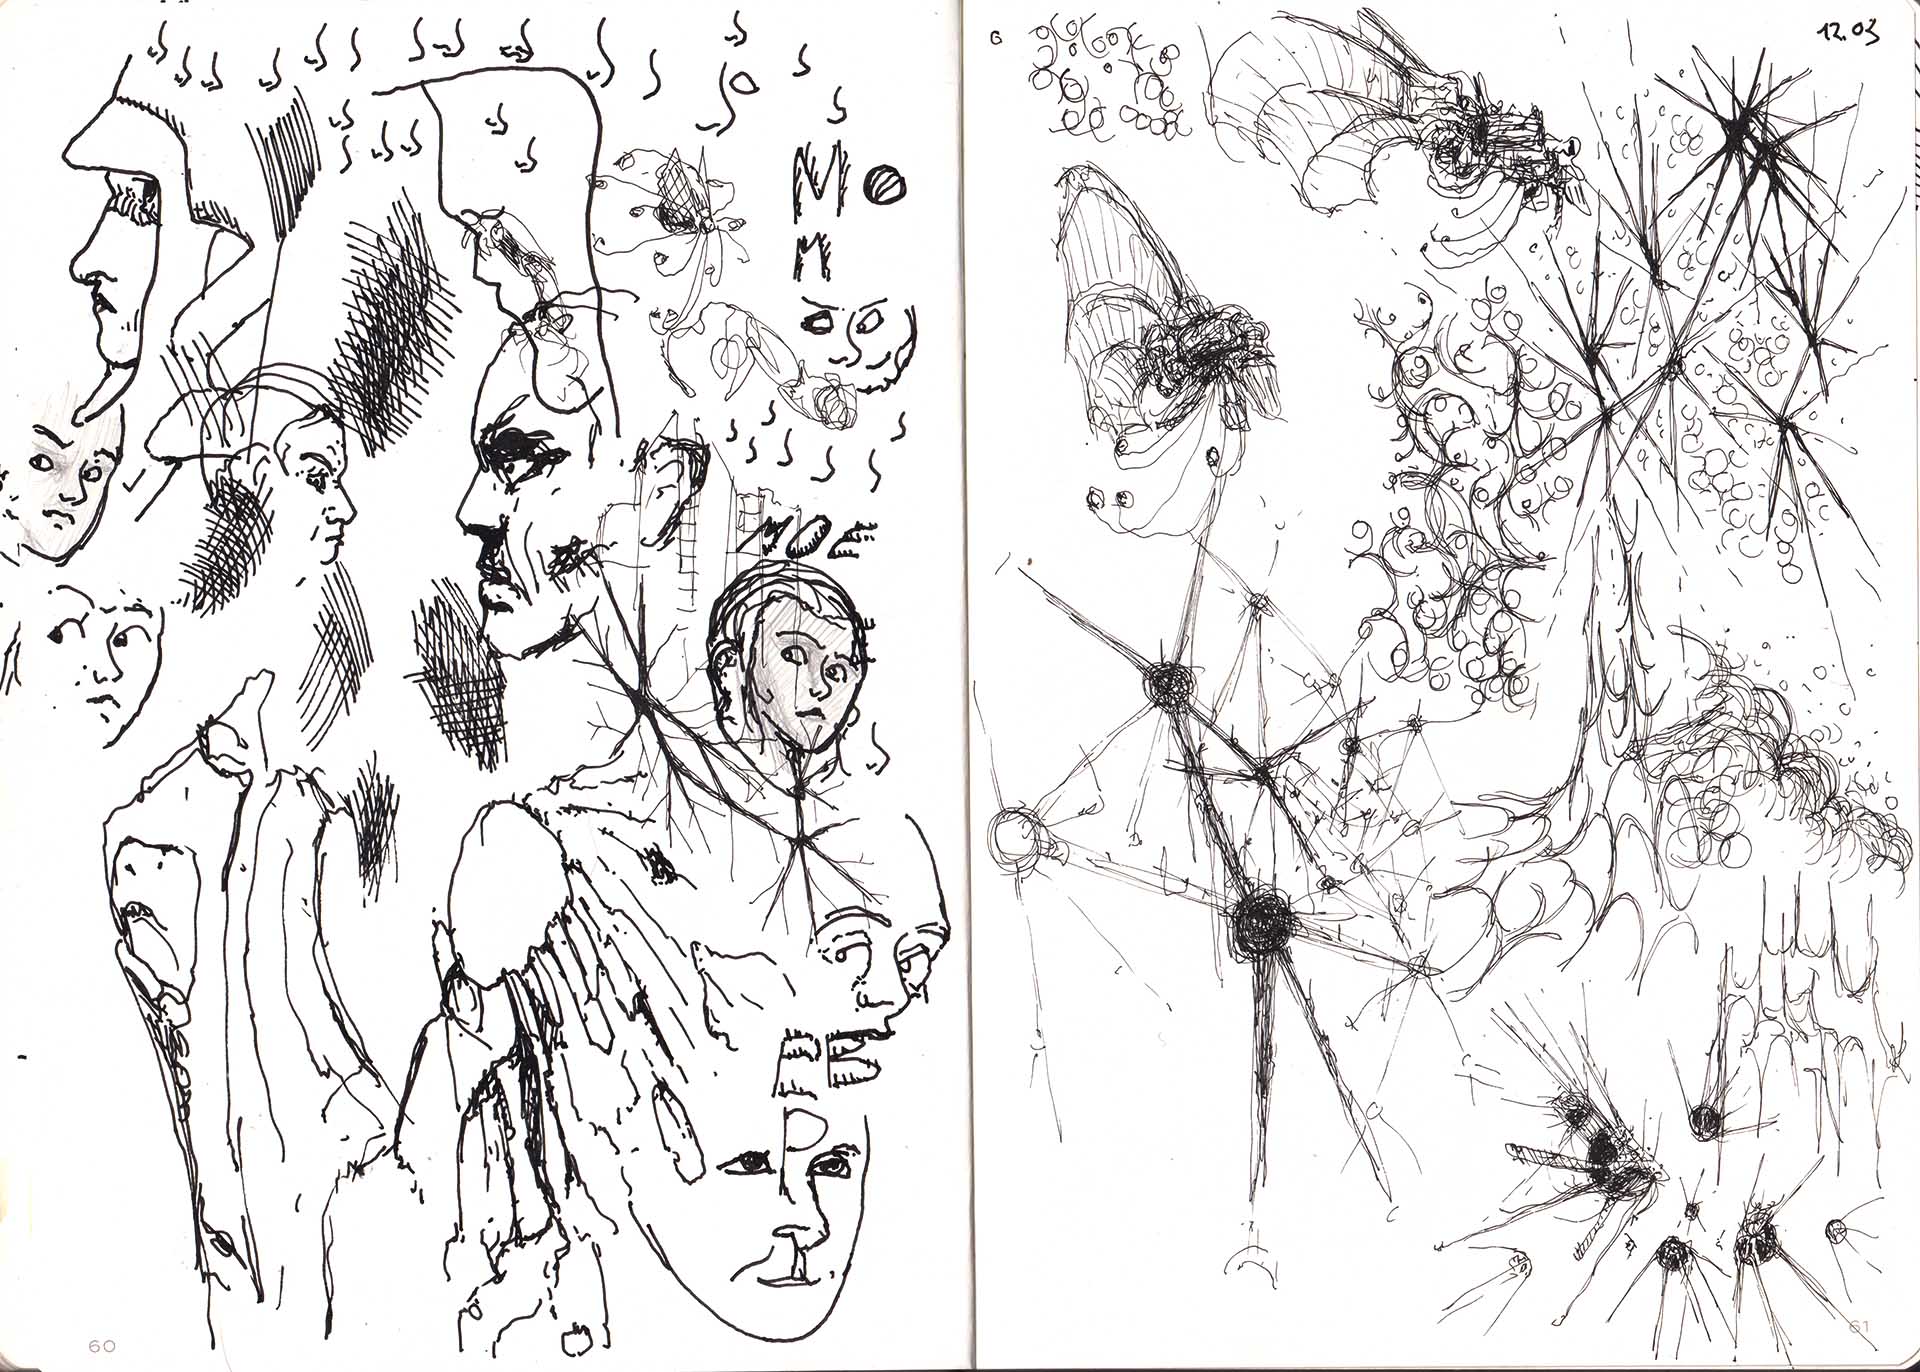 MO
M
MOE
EB
P
60
12.03
61